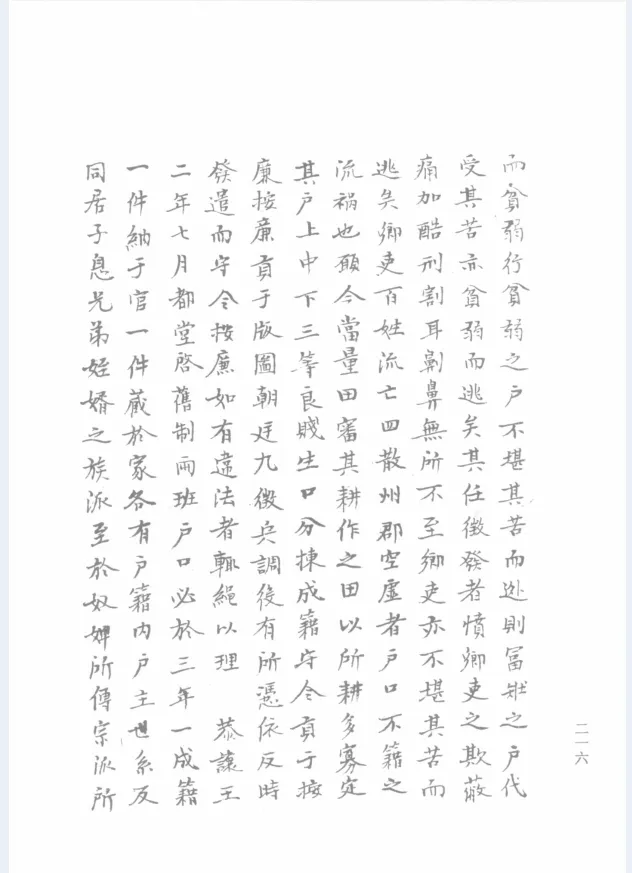 而貧弱行貧弱之戶不堪其苦而逃則冨壯之戶代
受其苦亦貧弱而逃矣其任徵發者憤鄉吏之欺蔽
痛加酷刑割耳劓鼻無所不至鄉吏亦不堪其苦而
逃矣鄉吏百姓流亡四散州郡空虛者戶口不籍之
流禍也願今當量田審其耕作之田以所耕多寡定
其戶上中下三等良賤生口分揀成籍守令貢于按
廉按廉貢于版圖朝廷凡徵兵調後有所憑依反時
發遣而守令按廉如有違法者輒繩以理 恭讓王
二年七月都堂啓舊制兩班戶口必於三年一成籍
一件納于官一件藏於家各有戶籍內戶主世系反
同居子息兄弟姪婿之族派至於奴婢所傳宗派所
二一六